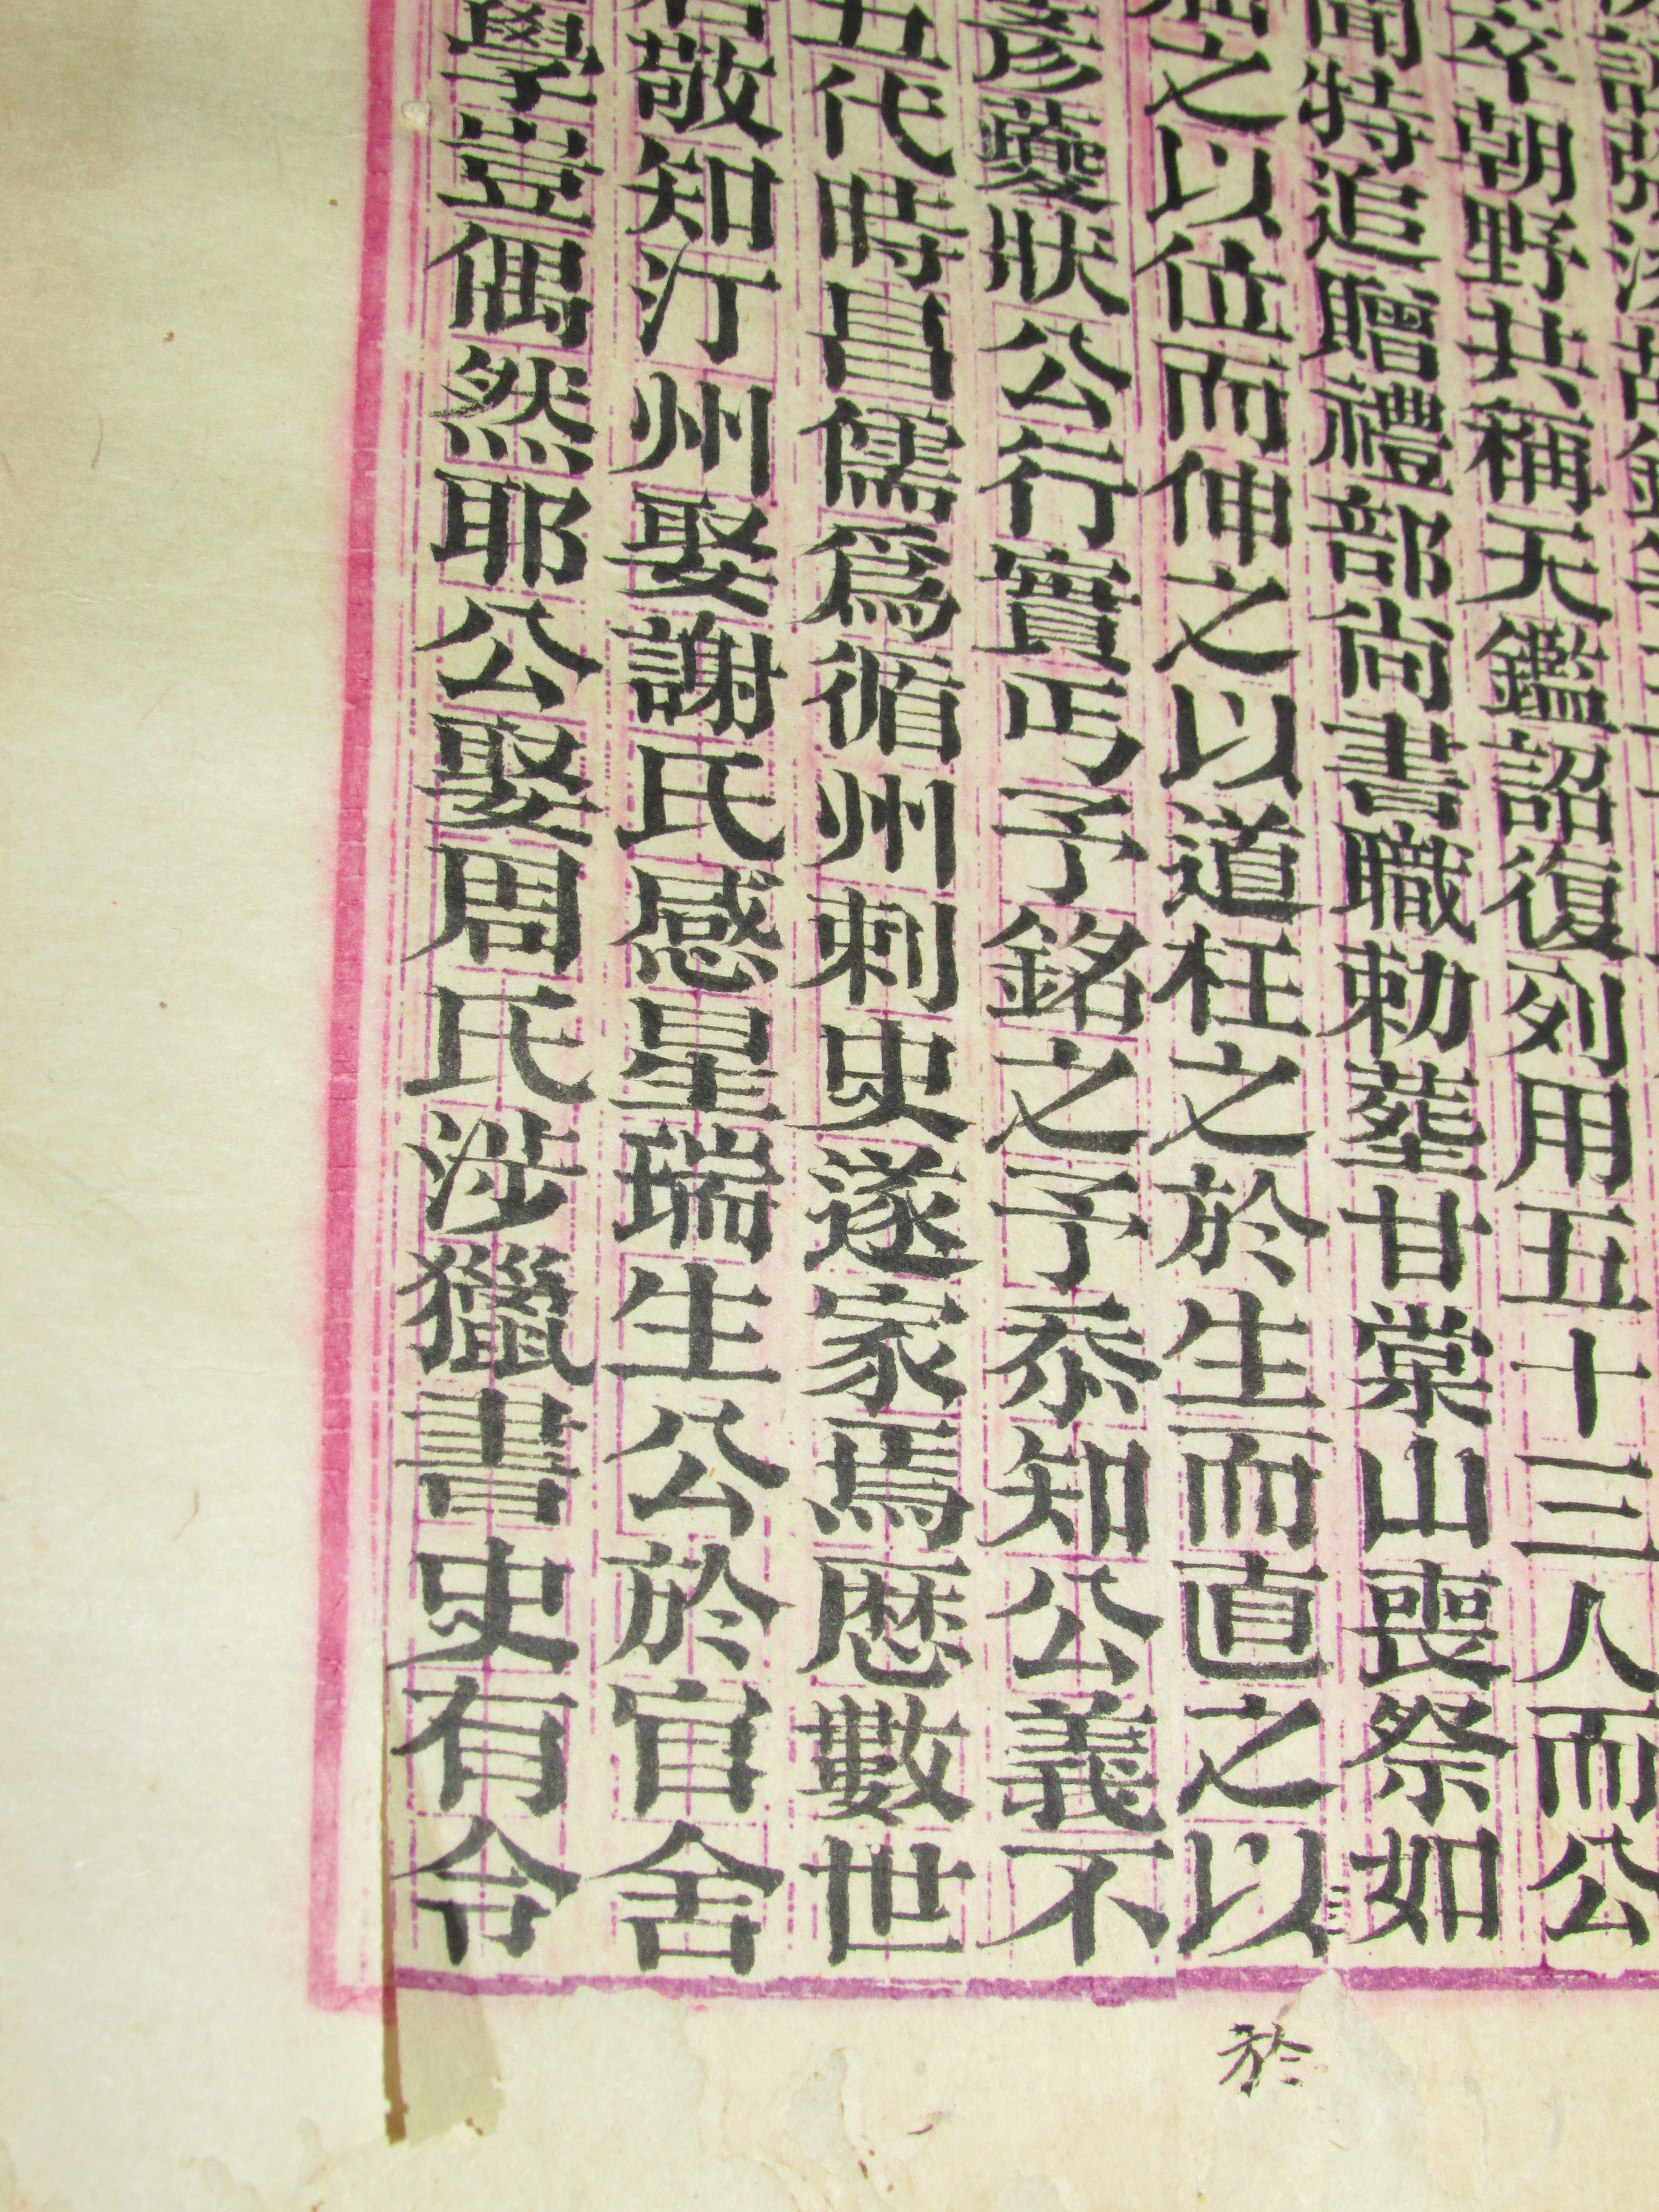 卒朝野共稱天鑑詔復列用五十三人而公
聞特追贈禮部尚書職勅塟甘棠山喪祭如
之以位而伸之以道枉之於生而直之以
彥夔狀公行實丐予銘之予忝知公義不
五代時昌儒爲循州刺史遂家焉歷數世
敬知汀州娶謝氏感星瑞生公於官舍
學豈偶然耶公娶周氏涉獵書史有令
於